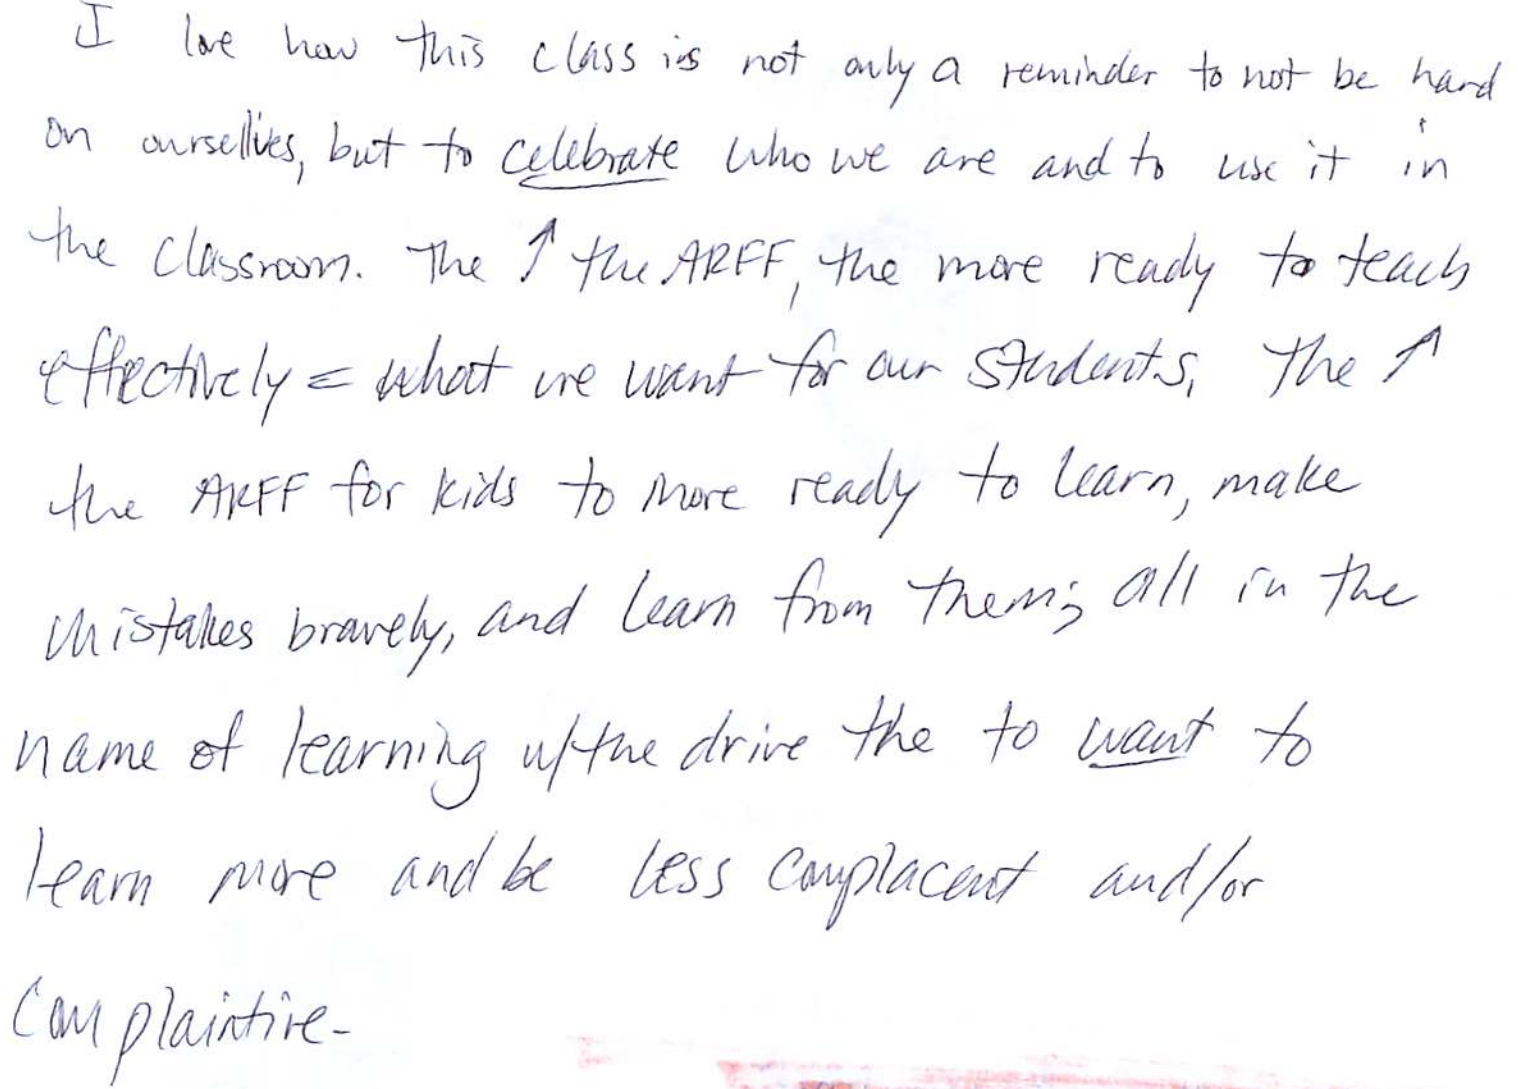 I love how this class is not only a reminder to not be hard
on ourselives, but to celebrate who we are and to use it in
the classroom. The ↑ the ARFF, the more ready to teach
effectively = what we want for our students. The ↑
the ARFF for kids to more ready to learn, make
mistakes bravely, and learn from them; all in the
name of learning w/the drive the to want to
learn more and be less complacent and/or
complaintive.